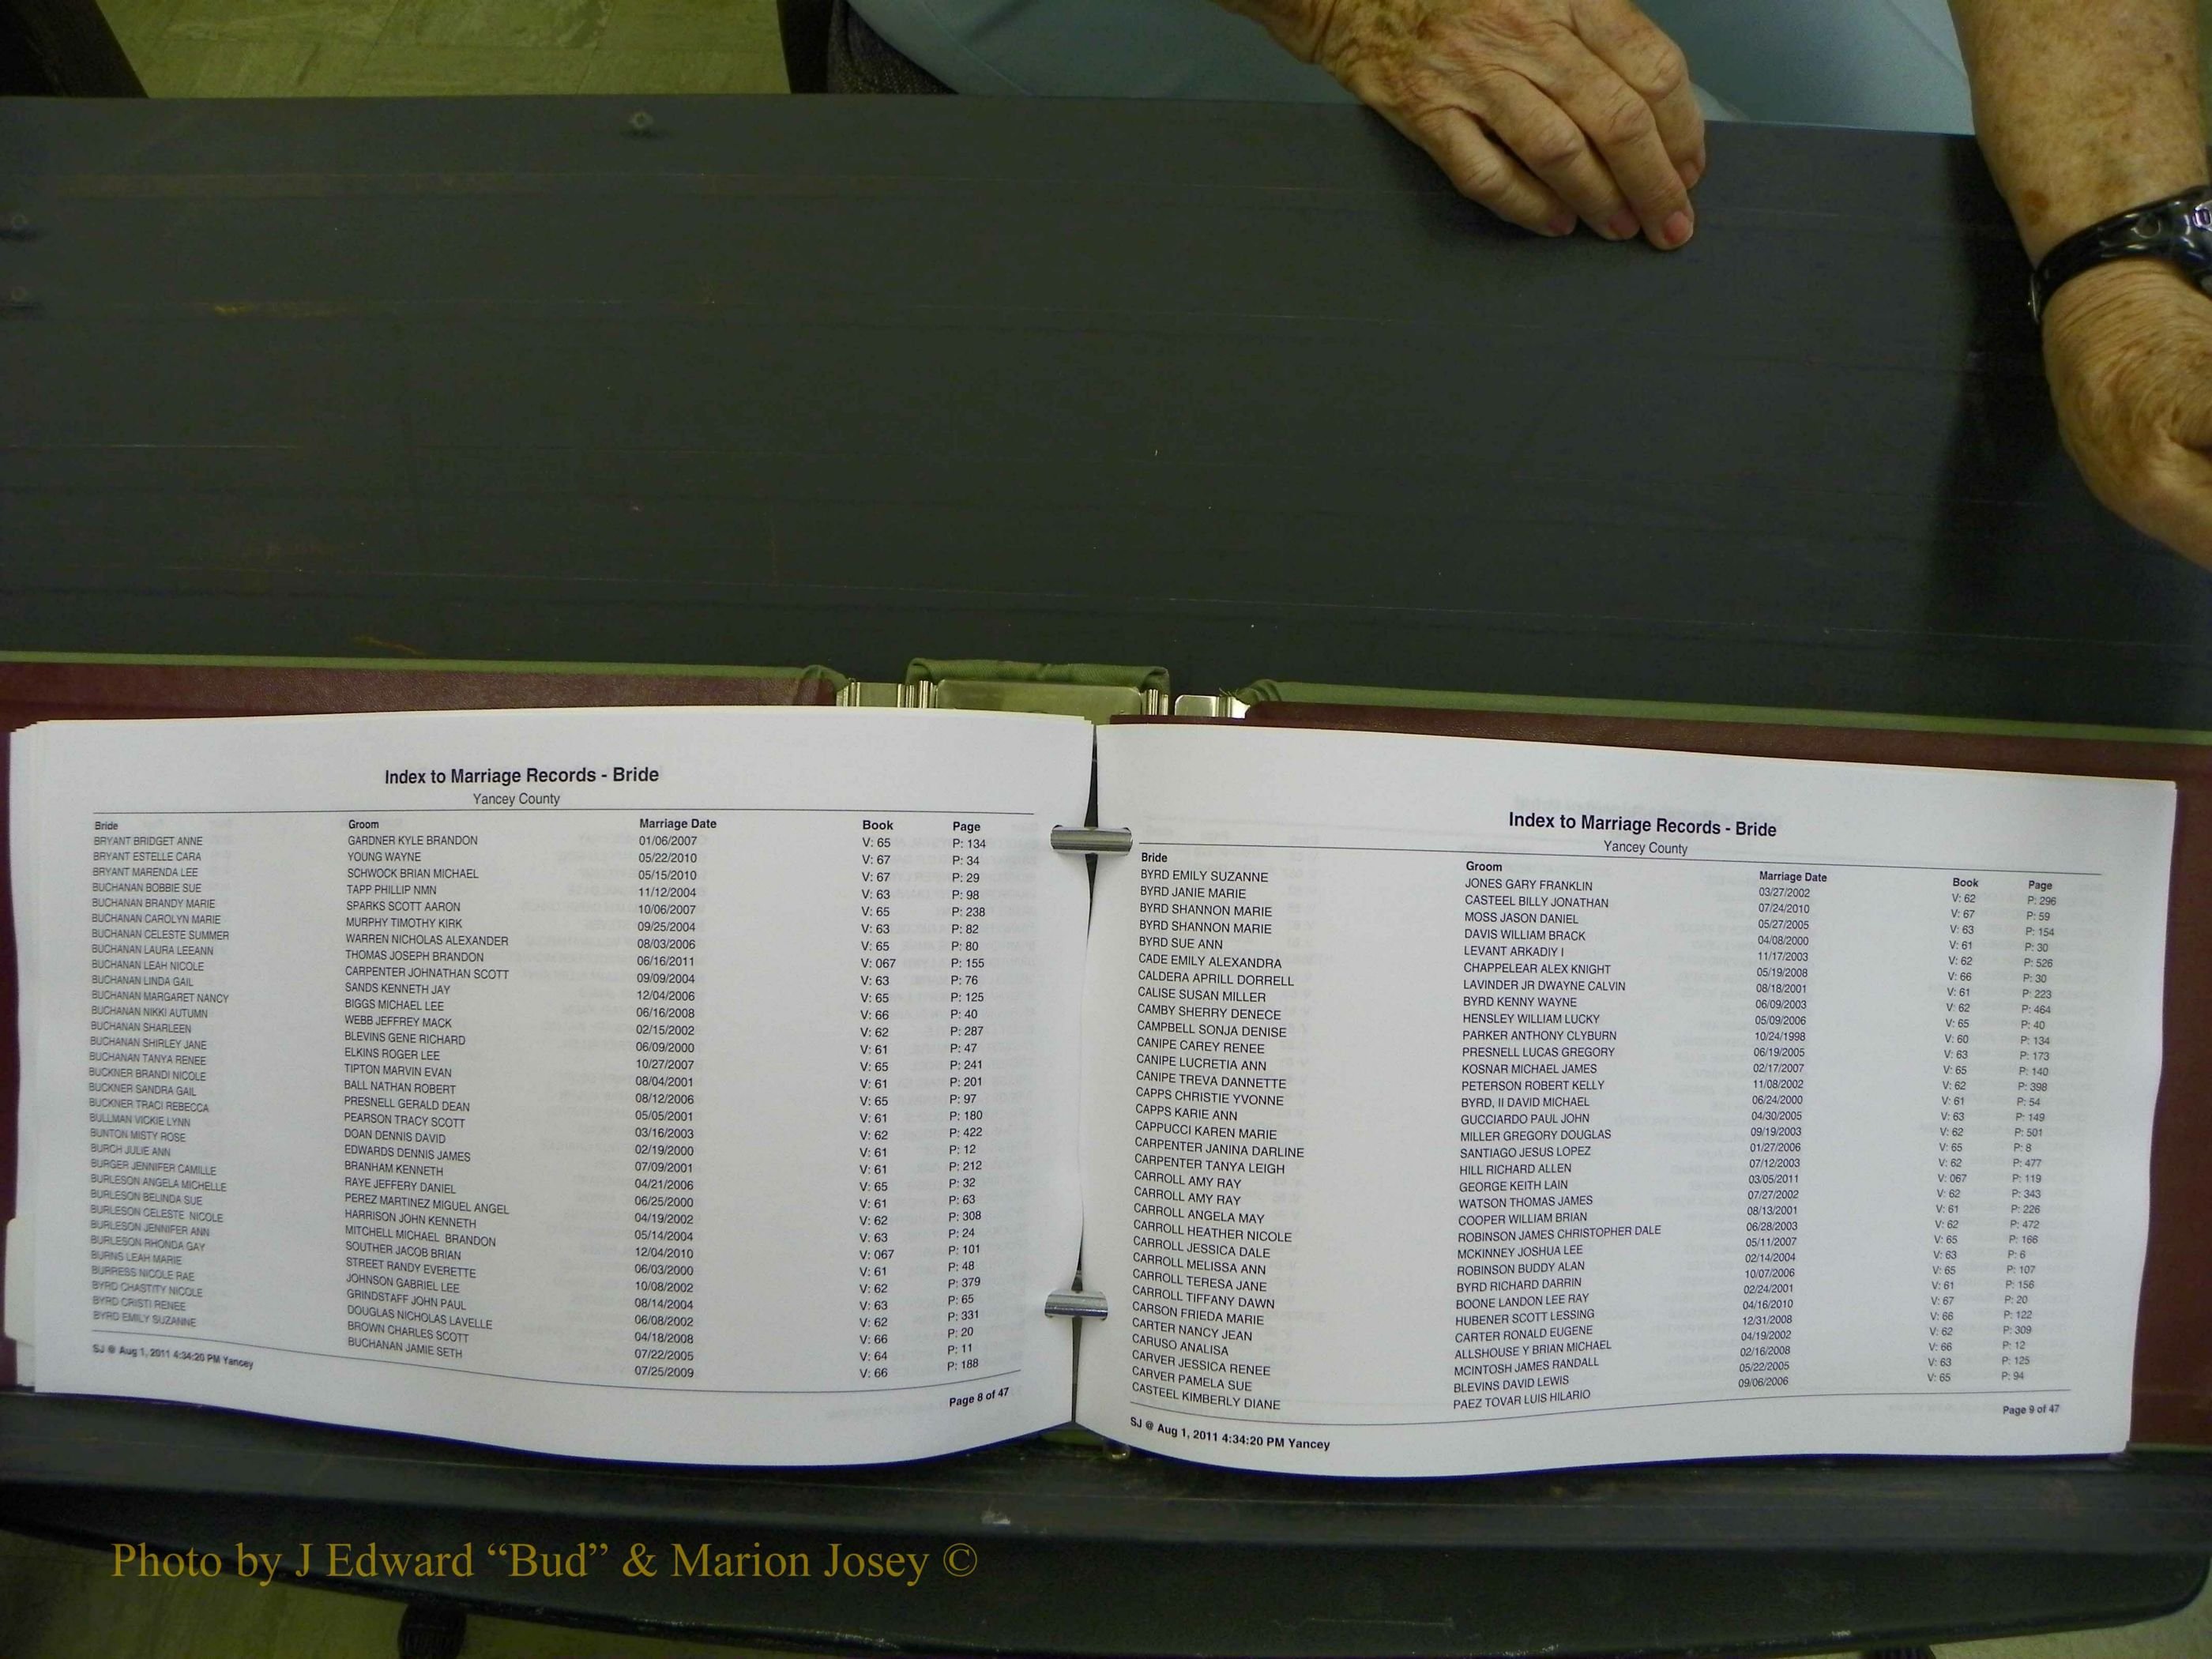 Index to Marriage Records - Bride
Yancey County
Bride Groom Marriage Date Book Page
BRYANT BRIDGET ANNE GARDNER KYLE BRANDON 01/06/2007 V: 65 P: 134
BRYANT ESTELLE CARA YOUNG WAYNE 05/22/2010 V: 67 P: 34
BRYANT MARENDA LEE SCHWOCK BRIAN MICHAEL 05/15/2010 V: 67 P: 29
BUCHANAN BOBBIE SUE TAPP PHILLIP NMN 11/12/2004 V: 63 P: 98
BUCHANAN BRANDY MARIE SPARKS SCOTT AARON 10/06/2007 V: 65 P: 238
BUCHANAN CAROLYN MARIE MURPHY TIMOTHY KIRK 09/25/2004 V: 63 P: 82
BUCHANAN CELESTE SUMMER WARREN NICHOLAS ALEXANDER 08/03/2006 V: 65 P: 80
BUCHANAN LAURA LEEANN THOMAS JOSEPH BRANDON 06/16/2011 V: 067 P: 155
BUCHANAN LEAH NICOLE CARPENTER JOHNATHAN SCOTT 09/09/2004 V: 63 P: 76
BUCHANAN LINDA GAIL SANDS KENNETH JAY 12/04/2006 V: 65 P: 125
BUCHANAN MARGARET NANCY BIGGS MICHAEL LEE 06/16/2008 V: 66 P: 40
BUCHANAN NIKKI AUTUMN WEBB JEFFREY MACK 02/15/2002 V: 62 P: 287
BUCHANAN SHARLEEN BLEVINS GENE RICHARD 06/09/2000 V: 61 P: 47
BUCHANAN SHIRLEY JANE ELKINS ROGER LEE 10/27/2007 V: 65 P: 241
BUCHANAN TANYA RENEE TIPTON MARVIN EVAN 08/04/2001 V: 61 P: 201
BUCKNER BRANDI NICOLE BALL NATHAN ROBERT 08/12/2006 V: 65 P: 97
BUCKNER SANDRA GAIL PRESNELL GERALD DEAN 05/05/2001 V: 61 P: 180
BUCKNER TRACI REBECCA PEARSON TRACY SCOTT 03/16/2003 V: 62 P: 422
BULLMAN VICKIE LYNN DOAN DENNIS DAVID 02/19/2000 V: 61 P: 12
BUNTON MISTY ROSE EDWARDS DENNIS JAMES 07/09/2001 V: 61 P: 212
BURCH JULIE ANN BRANHAM KENNETH 04/21/2006 V: 65 P: 32
BURGER JENNIFER CAMILLE RAYE JEFFERY DANIEL 06/25/2000 V: 61 P: 63
BURLESON ANGELA MICHELLE PEREZ MARTINEZ MIGUEL ANGEL 04/19/2002 V: 62 P: 308
BURLESON BELINDA SUE HARRISON JOHN KENNETH 05/14/2004 V: 63 P: 24
BURLESON CELESTE NICOLE MITCHELL MICHAEL BRANDON 12/04/2010 V: 067 P: 101
BURLESON JENNIFER ANN SOUTHER JACOB BRIAN 06/03/2000 V: 61 P: 48
BURLESON RHONDA GAY STREET RANDY EVERETTE 10/08/2002 V: 62 P: 379
BURNS LEAH MARIE JOHNSON GABRIEL LEE 08/14/2004 V: 63 P: 65
BURRESS NICOLE RAE GRINDSTAFF JOHN PAUL 06/08/2002 V: 62 P: 331
BYRD CHASTITY NICOLE DOUGLAS NICHOLAS LAVELLE 04/18/2008 V: 66 P: 20
BYRD CRISTI RENEE BROWN CHARLES SCOTT 07/22/2005 V: 64 P: 11
BYRD EMILY SUZANNE BUCHANAN JAMIE SETH 07/25/2009 V: 66 P: 188
SJ @ Aug 1, 2011 4:34:20 PM Yancey Page 8 of 47
Index to Marriage Records - Bride
Yancey County
Bride Groom Marriage Date Book Page
BYRD EMILY SUZANNE JONES GARY FRANKLIN 03/27/2002 V: 62 P: 296
BYRD JANIE MARIE CASTEEL BILLY JONATHAN 07/24/2010 V: 67 P: 59
BYRD SHANNON MARIE MOSS JASON DANIEL 05/27/2005 V: 63 P: 154
BYRD SHANNON MARIE DAVIS WILLIAM BRACK 04/08/2000 V: 61 P: 30
BYRD SUE ANN LEVANT ARKADIY I 11/17/2003 V: 62 P: 526
CADE EMILY ALEXANDRA CHAPPELEAR ALEX KNIGHT 05/19/2008 V: 66 P: 30
CALDERA APRILL DORRELL LAVINDER JR DWAYNE CALVIN 08/18/2001 V: 61 P: 223
CALISE SUSAN MILLER BYRD KENNY WAYNE 06/09/2003 V: 62 P: 464
CAMBY SHERRY DENECE HENSLEY WILLIAM LUCKY 05/09/2006 V: 65 P: 40
CAMPBELL SONJA DENISE PARKER ANTHONY CLYBURN 10/24/1998 V: 60 P: 134
CANIPE CAREY RENEE PRESNELL LUCAS GREGORY 06/19/2005 V: 63 P: 173
CANIPE LUCRETIA ANN KOSNAR MICHAEL JAMES 02/17/2007 V: 65 P: 140
CANIPE TREVA DANNETTE PETERSON ROBERT KELLY 11/08/2002 V: 62 P: 398
CAPPS CHRISTIE YVONNE BYRD, II DAVID MICHAEL 06/24/2000 V: 61 P: 54
CAPPS KARIE ANN GUCCIARDO PAUL JOHN 04/30/2005 V: 63 P: 149
CAPPUCCI KAREN MARIE MILLER GREGORY DOUGLAS 09/19/2003 V: 62 P: 501
CARPENTER JANINA DARLINE SANTIAGO JESUS LOPEZ 01/27/2006 V: 65 P: 8
CARPENTER TANYA LEIGH HILL RICHARD ALLEN 07/12/2003 V: 62 P: 477
CARROLL AMY RAY GEORGE KEITH LAIN 03/05/2011 V: 067 P: 119
CARROLL AMY RAY WATSON THOMAS JAMES 07/27/2002 V: 62 P: 343
CARROLL ANGELA MAY COOPER WILLIAM BRIAN 08/13/2001 V: 61 P: 226
CARROLL HEATHER NICOLE ROBINSON JAMES CHRISTOPHER DALE 06/28/2003 V: 62 P: 472
CARROLL JESSICA DALE MCKINNEY JOSHUA LEE 05/11/2007 V: 65 P: 166
CARROLL MELISSA ANN ROBINSON BUDDY ALAN 02/14/2004 V: 63 P: 6
CARROLL TERESA JANE BYRD RICHARD DARRIN 10/07/2006 V: 65 P: 107
CARROLL TIFFANY DAWN BOONE LANDON LEE RAY 02/24/2001 V: 61 P: 156
CARSON FRIEDA MARIE HUBENER SCOTT LESSING 04/16/2010 V: 67 P: 20
CARTER NANCY JEAN CARTER RONALD EUGENE 12/31/2008 V: 66 P: 122
CARUSO ANALISA ALLSHOUSE Y BRIAN MICHAEL 04/19/2002 V: 62 P: 309
CARVER JESSICA RENEE MCINTOSH JAMES RANDALL 02/16/2008 V: 66 P: 12
CARVER PAMELA SUE BLEVINS DAVID LEWIS 05/22/2005 V: 63 P: 125
CASTEEL KIMBERLY DIANE PAEZ TOVAR LUIS HILARIO 09/06/2006 V: 65 P: 94
SJ @ Aug 1, 2011 4:34:20 PM Yancey Page 9 of 47
Photo by J Edward “Bud” & Marion Josey ©